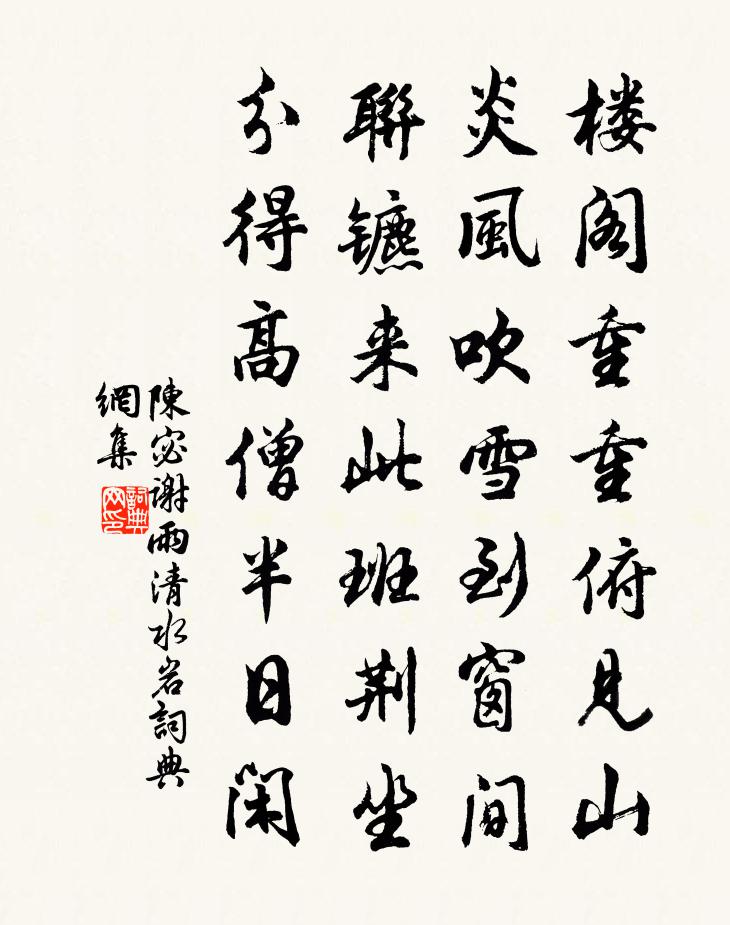 楼阁重重俯见山
炎風吹雪到窗间
聯镳来此班荆坐
分得高僧半日闲
陳宓谢雨清水岩詞典
網集
詞典
网印